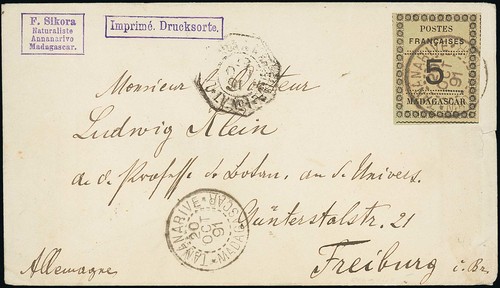 F. Sikora
Naturaliste
Annanarivo
Madagascar.
Imprimé. Drucksorte.
POSTES
FRANÇAISES
5
MADAGASCAR
Monsieur
Ludwig Klein
a. d. Professe d. Botan. an d. Univers.
Günterstalstr. 21
Freiburg i. Br.
Allemagne
TANANARIVE
20
OCT
91
MADAGASCAR